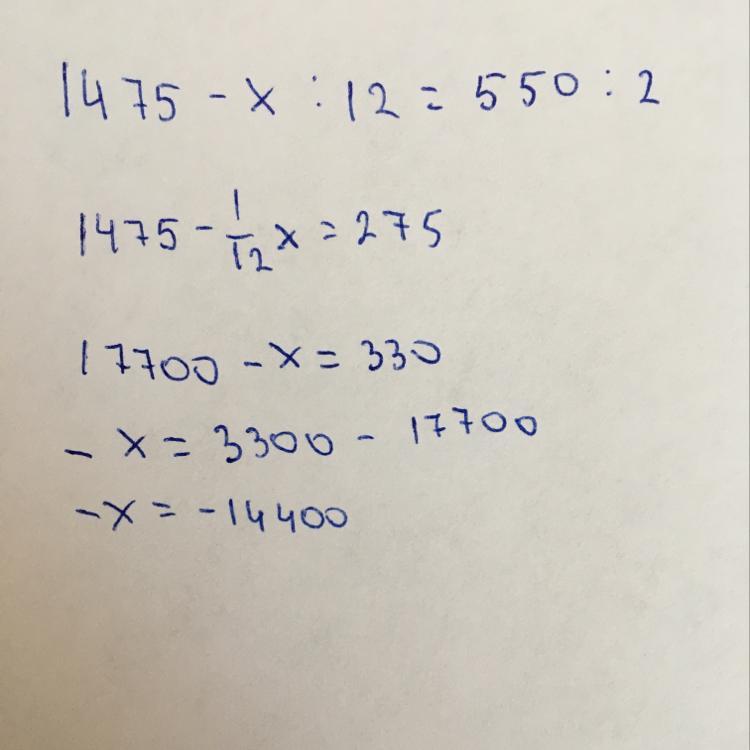 1475 - x : 12 = 550 : 2
1475 - 1/12 x = 275
17700 - x = 330
- x = 3300 - 17700
- x = -14400